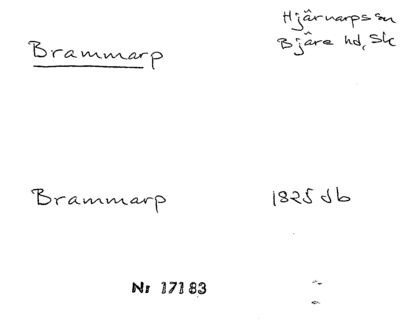 Hjärnarps sn
Brammarp
Bjäre hd, Sk
Brammarp 1825 db
Nr 17183